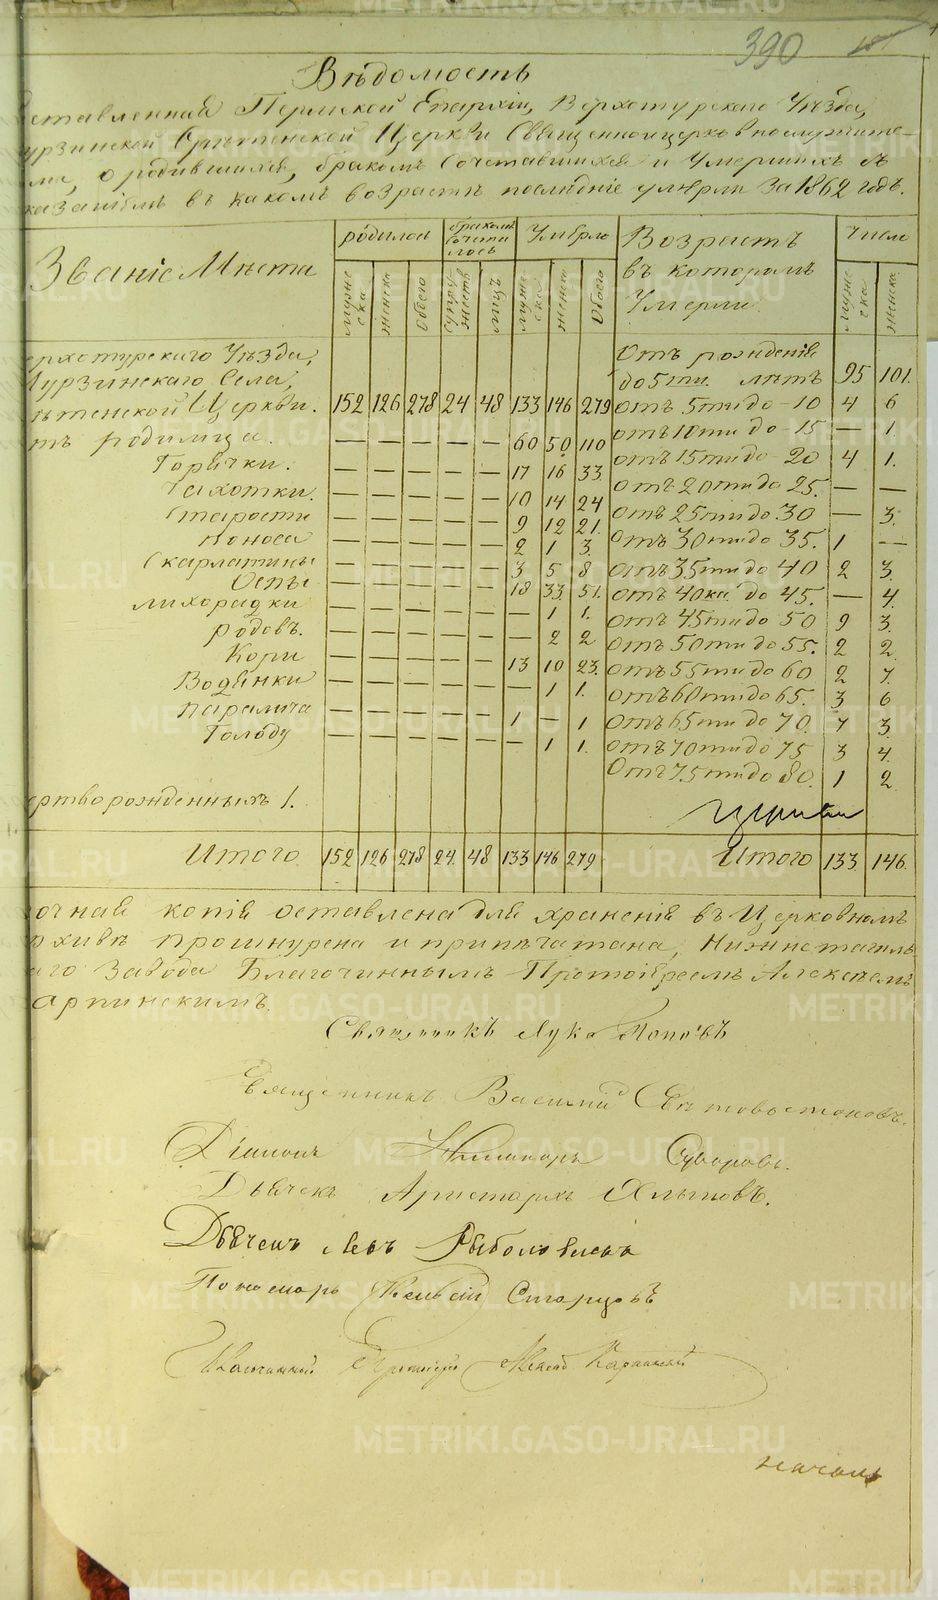 390
Вѣдомость
ставленная Пермской Епархіи, Верхотурскаго Уѣзда,
урзинской Срѣтенской Церкви Священноцерковнослужите-
ми, о родившихся, бракомъ сочетавшихся и Умершихъ съ
казаніемъ въ какомъ возрастѣ послѣдніе умѣрли За 1862 годъ.
Званіе Мѣста
родилось
бракомъ сочета лось
Умѣрло
Возрастъ въ которомъ Умерли
Число
мужеска женска обоего супружествъ лицъ мужеска женска Обоего мужеска женска
ерхотурскаго Уѣзда, Отъ рожденія
Мурзинскаго Села, до 5ти лѣтъ 95 101.
ѣтенской Церкви. 152 126 278 24 48 133 146 279 отъ 5ти до 10 4 6
тъ родимца. — — — — — 60 50 110 отъ 10ти до 15 — 1.
Горячки. — — — — — 17 16 33 отъ 15ти до 20 4 1.
Чахотки. — — — — — 10 14 24 отъ 20ти до 25. — —
Старости — — — — — 9 12 21. отъ 25ти до 30 — 3.
Поноса — — — — — 2 1 3. отъ 30ти до 35. 1 —
Скарлатины — — — — — 3 5 8 отъ 35ти до 40 2 3.
Оспы — — — — — 18 33. 51. отъ 40ка до 45. — 4.
лихорадки — — — — — — 1 1. отъ 45ти до 50 9 3.
родовъ. — — — — — — 2 2 отъ 50ти до 55. 2 2.
Кори — — — — — 13 10 23. отъ 55ти до 60 2 7.
Водянки — — — — — — 1 1. отъ 60ти до 65. 3 6
паралича — — — — — 1 — 1 отъ 65ти до 70. 7 3.
Голоду — — — — — — 1 1. отъ 70ти до 75 3 4.
Отъ 75ти до 80. 1 2
ертворожденныхъ 1.
Итого 152 126 278 24. 48 133 146 279 Итого 133 146.
очная копія оставлена для храненія въ Церковномъ
рхивѣ прошнурена и припѣчатана, Нижнетагиль
аго Завода Благочиннымъ Протоіереемъ Алексѣемъ
арпинскимъ.
Священникъ Лука Поповъ
Священникъ Василій Свѣтовостоковъ.
Діаконъ Никаноръ Суворовъ.
Дьячекъ Аристархъ Хлыновъ.
Дьячекъ Левъ
Пономарь Старцовъ
Благочинный Протоіерей Алексѣй Карпинскій
METRIKI.GASO-URAL.RU